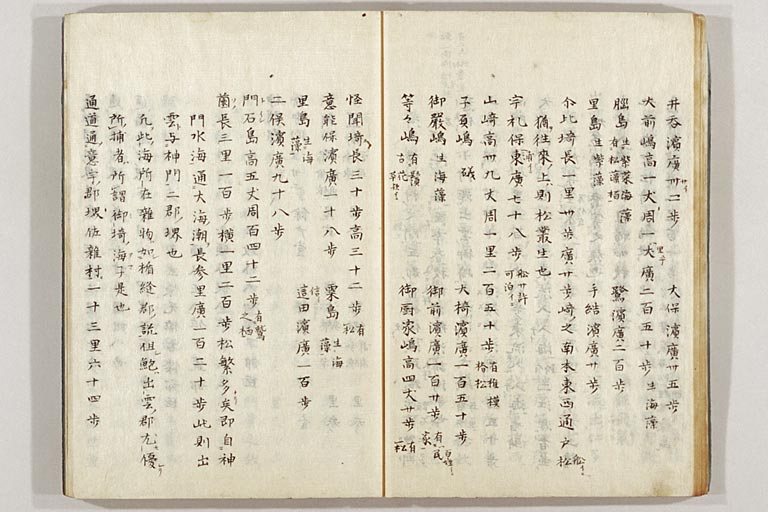 井呑濱廣卅二步 大保濱廣卅五步
大前嶋高一丈周一 廣二百五十步 生海藻
腦島 生紫菜海藻 有松蘿栢 鷺濱廣二百步
里島 生紫藻 手結濱廣卄步
尒比埼長一里卅步廣卄步埼之南本東西通戶 松
猶徃來上則松叢生也
宇礼保東廣七十八步 可泊
山埼高卅九丈周一里二百五十步 有椎楠椿松
子負嶋 礒 大椅濱廣一百五十步
御嚴嶋 生海藻 御前濱廣一百卅步 有百姓家
等々嶋 有 御厨家嶋高四丈卄步 有松
怪聞埼長三十步高三十二步 有松
意能保濱廣一十八步 粟島 生海藻
里島 生海藻 這田濱廣一百步
二俣濱廣九十八步
門石島高五丈周百四十二步 有鷲之栖
薗長三里一百步横一里二百步松繁多矣即自神
門水海通大海潮長参里廣一百二十步此則出
雲与神門二郡堺也
凡北海所在雜物如楯縫郡說但鮑出雲郡尤優
所捕者所謂御埼海子是也
通道通意宇郡堺佐雜村一十三里六十四步